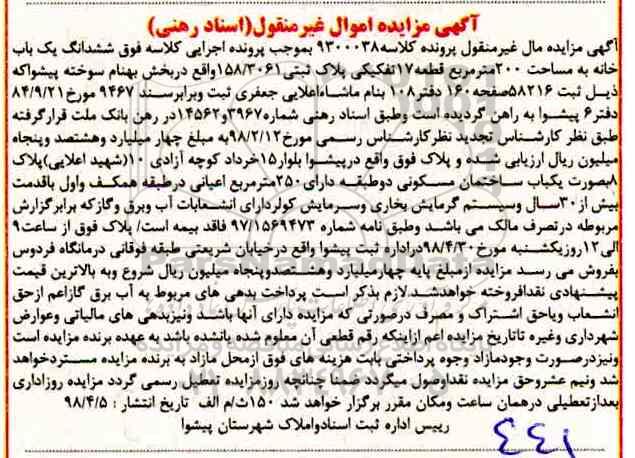 آگهی مزایده اموال غیرمنقول(اسناد رهنی)
آگهی مزایده مال غیرمنقول پرونده کلاسه۹۳۰۰۰۳۸ بموجب پرونده اجرایی کلاسه فوق ششدانگ یک باب
خانه به مساحت ۲۰۰مترمربع قطعه۱۷تفکیکی پلاک ثبتی۱۵۸/۳۰۶۱واقع دربخش بهنام سوخته پیشواکه
ذیل ثبت ۵۸۲۱۶صفحه۱۶۰ دفتر۱۰۸ بنام ماشاءاله‌اعلایی جعفری ثبت وبرابرسند ۹۴۶۷ مورخ۸۴/۹/۲۱
دفتر۶ پیشوا به راهن گردیده است وطبق اسناد رهنی شماره۳۹۶۷و۱۴۵۶۲در رهن بانک ملت قرارگرفته
طبق نظر کارشناس تجدید نظرکارشناس رسمی مورخ۹۸/۲/۱۲به مبلغ چهار میلیارد وهشتصد وپنجاه
میلیون ریال ارزیابی شده و پلاک فوق واقع درپیشوا بلوار۱۵خرداد کوچه آزادی ۱۰(شهید اعلایی)پلاک
۸بصورت یکباب ساختمان مسکونی دوطبقه دارای۲۵۰مترمربع اعیانی درطبقه همکف واول باقدمت
بیش از۳۰سال وسیستم گرمایش بخاری وسرمایش کولردارای انشعابات آب وبرق وگازکه برابرگزارش
مربوطه درتصرف مالک می باشد وطبق نامه شماره ۹۷/۱۵۶۹۴۷۳ فاقد بیمه است/ پلاک فوق از ساعت۹
الی۱۲روزیکشنبه مورخ۹۸/۴/۳۰دراداره ثبت پیشوا واقع درخیابان شریعتی طبقه فوقانی درمانگاه فردوس
بفروش می رسد مزایده ازمبلغ پایه چهارمیلیارد وهشتصدوپنجاه میلیون ریال شروع وبه بالاترین قیمت
پیشنهادی نقدافروخته خواهدشد.لازم بذکر است پرداخت بدهی های مربوط به آب برق گازاعم ازحق
انشعاب ویاحق اشتراک و مصرف درصورتی که مزایده دارای آنها باشد ونیزبدهی های مالیاتی وعوارض
شهرداری وغیره تاتاریخ مزایده اعم ازاینکه رقم قطعی آن معلوم شده یانشده باشد به عهده برنده مزایده است
ونیزدرصورت وجودمازاد وجوه پرداختی بابت هزینه های فوق ازمحل مازاد به برنده مزایده مستردخواهد
شد ونیم عشروحق مزایده نقداوصول میگردد ضمنا چنانچه روزمزایده تعطیل رسمی گردد مزایده روزاداری
بعدازتعطیلی درهمان ساعت ومکان مقرر برگزار خواهد شد ۱۵۰ث/م الف تاریخ انتشار : ۹۸/۴/۵
رییس اداره ثبت اسنادواملاک شهرستان پیشوا
۴۴۱
ParsNamadData